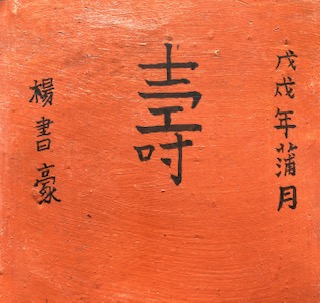 戊戌年蒲月
壽
楊書豪